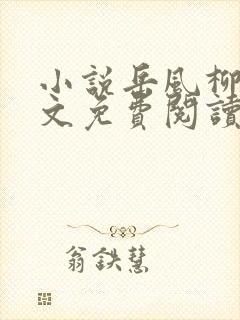 小說岳風柳
文免費閱讀
翁鉄慧